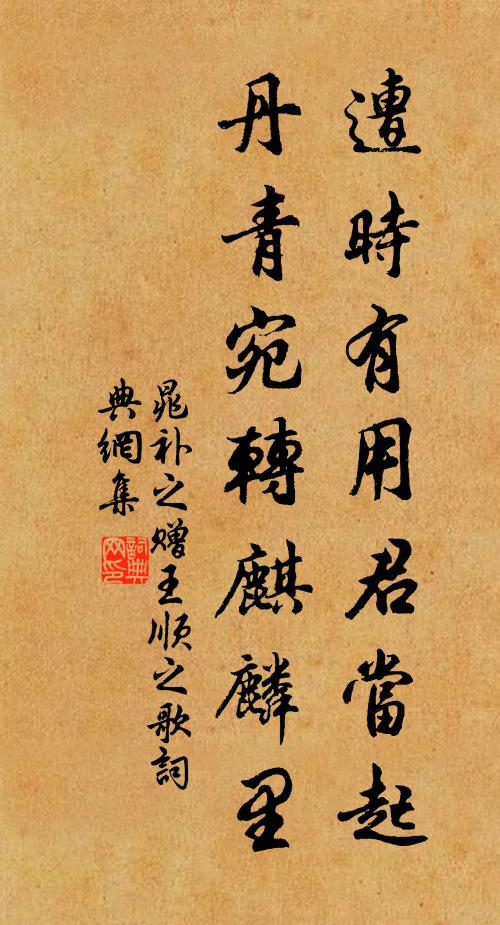 遭時有用君當起
丹青宛轉麒麟里
晁补之赠王顺之歌詞
典網集
詞典網印